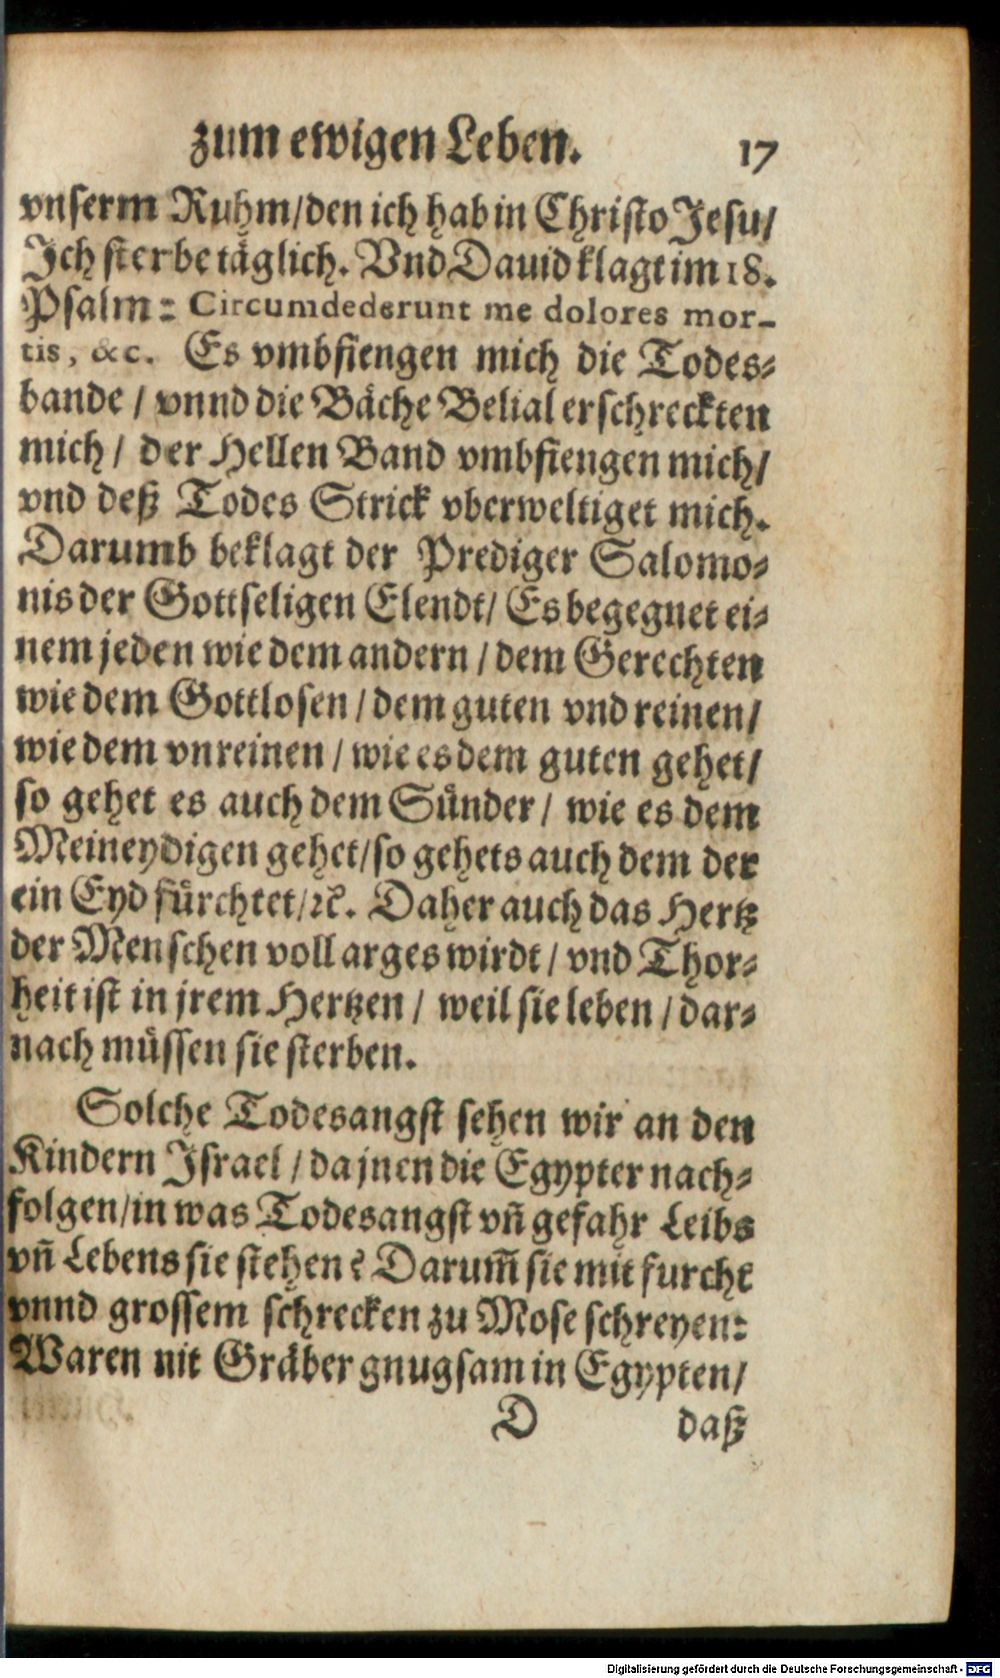 zum ewigen Leben. 17
vnserm Ruhm/den ich hab in Christo Jesu/
Ich sterbe täglich. Vnd Dauid klagt im 18.
Psalm: Circumdederunt me dolores mor-
tis, &c. Es vmbfiengen mich die Todes-
bande / vnnd die Bäche Belial erschreckten
mich / der Hellen Band vmbfiengen mich/
vnd deß Todes Strick vberweltiget mich.
Darumb beklagt der Prediger Salomo-
nis der Gottseligen Elendt/ Es begegnet ei-
nem jeden wie dem andern / dem Gerechten
wie dem Gottlosen / dem guten vnd reinen/
wie dem vnreinen / wie es dem guten gehet/
so gehet es auch dem Sünder / wie es dem
Meineydigen gehet/so gehets auch dem der
ein Eyd fürchtet/ꝛc. Daher auch das Hertz
der Menschen voll arges wirdt / vnd Thor-
heit ist in jrem Hertzen / weil sie leben / dar-
nach müssen sie sterben.
Solche Todesangst sehen wir an den
Kindern Israel / da jnen die Egypter nach-
folgen/in was Todesangst vñ gefahr Leibs
vñ Lebens sie stehen? Darum̃ sie mit furcht
vnnd grossem schrecken zu Mose schreyen:
Waren nit Gräber gnugsam in Egypten/
D daß
Digitalisierung gefördert durch die Deutsche Forschungsgemeinschaft - DFG